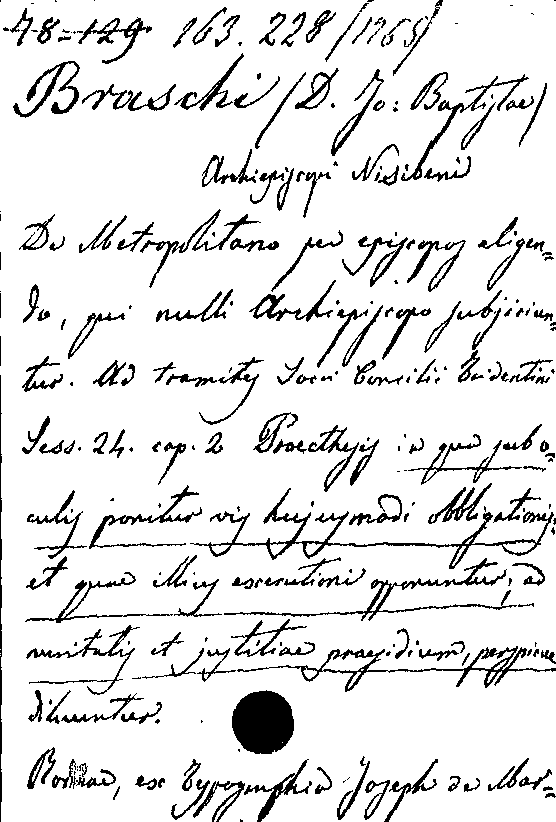 78=129. 163. 228 /1765/
Braschi /D. Jo: Baptistae/
Archiepiscopi Nisibeni
De Metropolitano per episcopos eligen=
do, qui nulli Archiepiscopo subjiciun=
tur. Ad tramites Sacri Concilii Tridentini
Sess. 24. cap. 2 Praecthesis in qua sub o=
culis ponitur vis hujusmodi obbligationis:
et quae illius executioni opponuntur; ad
veritatis et justitiae praesidium, perspicue
diluuntur.
Romae, ex Typographia Joseph de Mar=